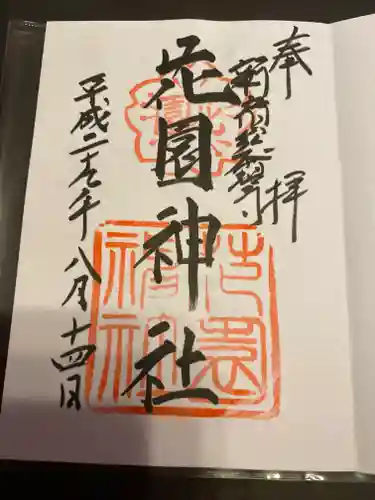 奉拝
新宿総鎮守
花園神社
平成二十九年八月十四日
花園神社